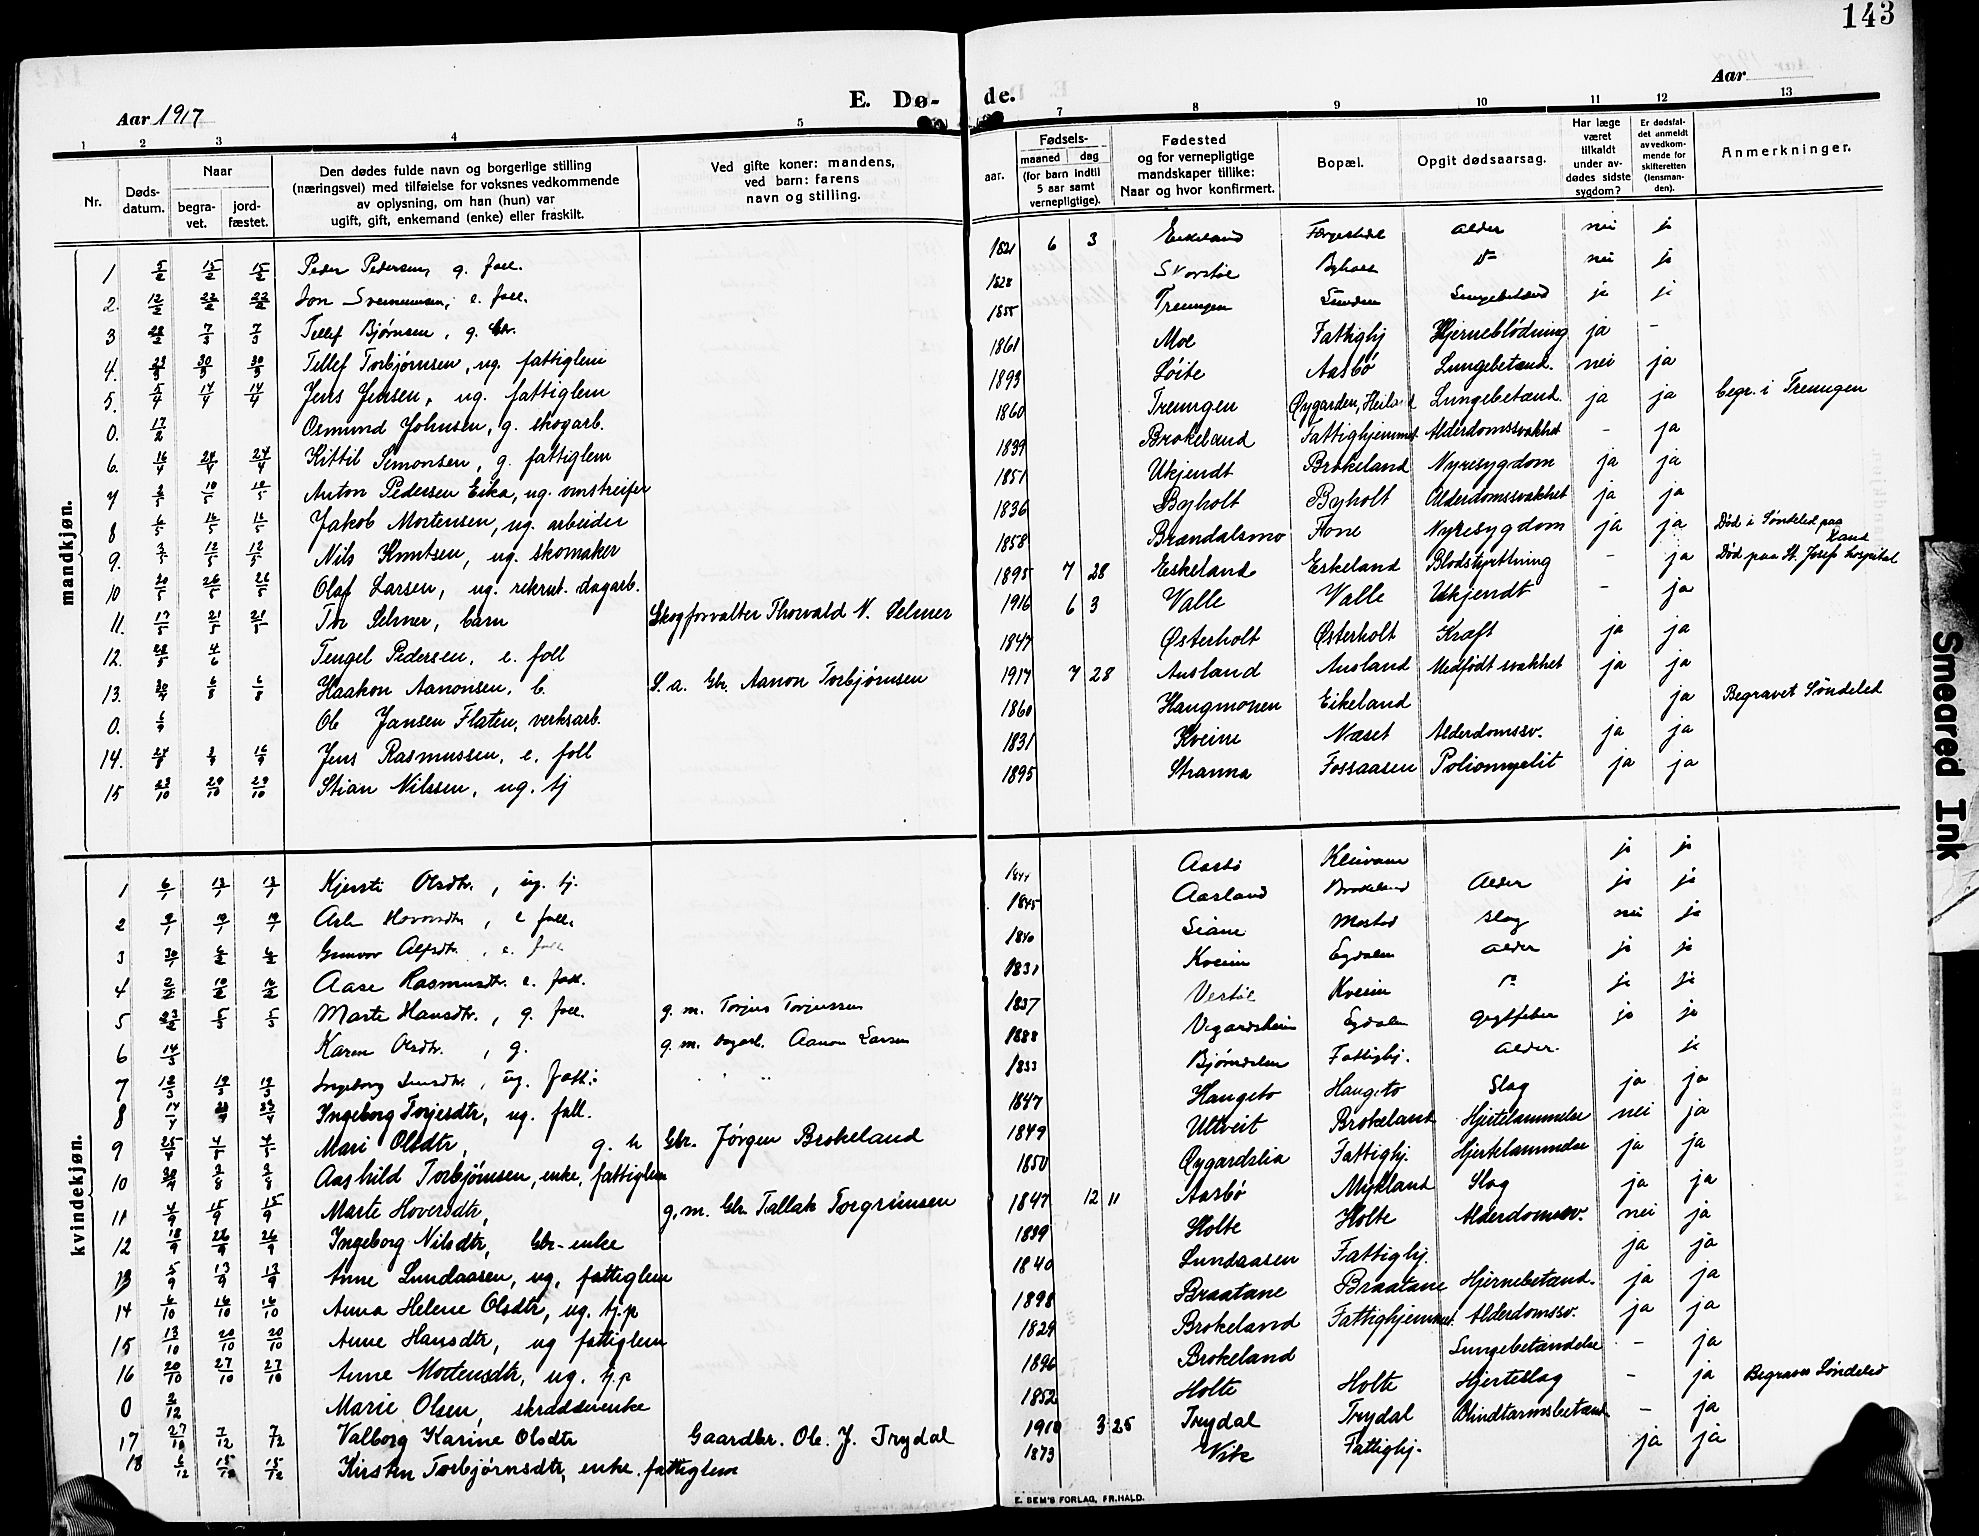 143
Aar 1917
E. Dø-
de.
Aar
1 2 3 4 5 7 8 9 10 11 12 13
Nr.
Døds-
datum.
Naar
begra-
vet.
jord-
fæstet.
Den dødes fulde navn og borgerlige stilling
(næringsvei) med tilføielse for voksnes vedkommende
av oplysning, om han (hun) var
ugift, gift, enkemand (enke) eller fraskilt.
Ved gifte koner: mandens,
ved barn: farens
navn og stilling.
Fødsels-
aar.
maaned dag
(for barn indtil
5 aar samt
vernepligtige).
Fødested
og for vernepligtige
mandskaper tillike:
Naar og hvor konfirmert.
Bopæl.
Opgit dødsaarsag.
Har læge
været
tilkaldt
under av-
dødes sidste
sygdom?
Er dødsfal-
det anmeldt
av vedkom-
mende for
skifteretten
(lensman-
den).
Anmerkninger.
mandkjøn.
1 5/2 15/2 15/2 Peder Pedersen, g. foll. 1821 6 3 Eikeland Alder nei ja
2. 12/2 22/2 22/2 Jon e. foll. 1828 nei ja
3 7/3 7/3 Tellef Bjørnsen, g. Gbr. 1855 Treungen Lungebetænd ja ja
4. 23/3 30/3 30/3 Tellef Torbjørnsen, ug. fattiglem 1861 Moe Fattighj Hjerneblödning ja -
5. 5/4 14/4 14/4 Jens Jensen, ug. fattiglem 1893 Löite Aasbö Lungebetænd. nei ja
0. 17/2 Osmund Johnsen, g. skogarb. 1860 Treungen Øygarden, Heiland Lungebetænd. ja ja begr. i Treungen
6. 16/4 24/4 24/4 Kittil Simonsen, g. fattiglem 1839 Brokeland Fattighjemmet Alderdomssvakhet - ja
7 2/5 10/5 10/5 Anton Pedersen Eika, ug. omstreifer 1851 Ukjendt Brokeland Nyresygdom ja ja
8 6/5 16/5 16/5 Jakob Mortensen, ug. arbeider 1836 Byholt Byholt Alderdomssvakhet ja ja
9. 3/5 12/5 12/5 Nils Knutsen, ug. skomaker 1858 Brændalsmo Fone Nyresygdom ja ja Död i Söndeled paa
10 20/5 26/5 26/5 Olaf Larsen, ug. rekrut. dagarb. 1895 7 28 Eskeland Eskeland Blodstyrtning - ja Död paa St. Josefs hospital
11. 17/5 21/5 21/5 Tor Selmer, barn Skogforvalter Thorvald N. Selmer 1916 6 3 Valle Valle Ukjendt - ja
12. 28/5 4/6 Tengel Pedersen, e. foll 1847 Østerholt Østerholt Kræft ja ja
13. 6/8 6/8 Haakon Aanonsen, b. S. a. Gbr. Aanon Torbjørnsen 1917 7 28 Ausland Ausland Medfödt svakhet ja ja
0. Ole Jansen Flaten, verksarb. 1860 Haugmonen Eikeland ja Begravet Söndeled
14. Jens Rasmussen, e. foll 1831 Kveim Næset Alderdomssv. ja ja
15 23/10 29/10 29/10 Stian Nilssen, ug. tj 1895 Stranna Fossaasen Poliomyelit ja ja
kvindekjøn.
1 6/1 13/1 13/1 Kjersti Olsdtr., ug. tj. 1844 Aasbö ja ja
2 e foll. 1845 Aasland Brokeland Alder ja ja
3 30/1 Gunvor e. foll 1840 Slag nei ja
4 10/2 10/2 Aase Rasmusdtr. e. foll. 1831 Kveim Egdalen Alder ja ja
5 23/2 5/3 5/3 Marte Hansdtr., g. foll. g. m. Torjus Torjussen 1837 Vestöl Kveim ja ja
6 14/3 Karen Olsdtr., g. g. m. dagarb. Aanon Larsen 1888 Vegardsheim Egdalen gigtfeber ja ja
7 Ingeborg ug. fatt. 1833 Bjørndalen Fattighj. Alder. ja
8 14/4 23/4 23/4 Ingeborg Torjesdtr, ug. foll. 1847 Haugeto Haugeto Slag ja ja
9 25/4 4/5 4/5 Mari Olsdtr, g. m Gbr. Jörgen Brokeland 1849 Ulltveit Brokeland Hjertelammelse nei ja
10 3/8 3/8 Aashild Torbjörnsen, enke, fattiglem 1850 Øygardslia Fattighj. Hjertelammelse ja ja
11 4/9 15/9 15/9 Marte Hoversdtr, g. m. Gbr. Tallak Torgrimsen 1847 12 11 Aasbö Mykland Slag ja ja
12 18/9 26/9 26/9 Ingeborg Nilsdtr, Gbr-enke 1839 Holte Holte Alderdomssv. nei ja
13 5/9 13/9 13/9 Anne Lundaasen, ug, fattiglem 1840 Lundaasen Fattighj. ja ja
14 6/10 16/10 16/10 Anna Helene Olsdtr, ug. tj.p 1898 Braatane Braatane Hjernebetænd. ja ja
15 13/10 20/10 20/10 Anne Hansdtr, ug fattiglem 1829 Brokeland Fattighjemmet Alderdomssv. ja ja
16 20/10 27/10 27/10 Anne Mortensdtr, ug. tj.p 1896 Brokeland Lungebetændelse - ja
0 2/12 Marie Olsen, skrædderenke 1852 Holte Holte Hjerteslag - ja Begraves Söndeled
17 27/10 7/12 7/12 Valborg Karine Olsdtr Gaardbr. Ole J. Trydal 1910 3 25 Trydal Trydal Blindtarmsbetænd - ja
18 6/12 15/12 15/12 Kirsten Torbjörnsdtr, enke. fattiglem 1873 Vik Fattighj. ja ja
E. SEM'S FORLAG, FR.HALD.
Smeared Ink